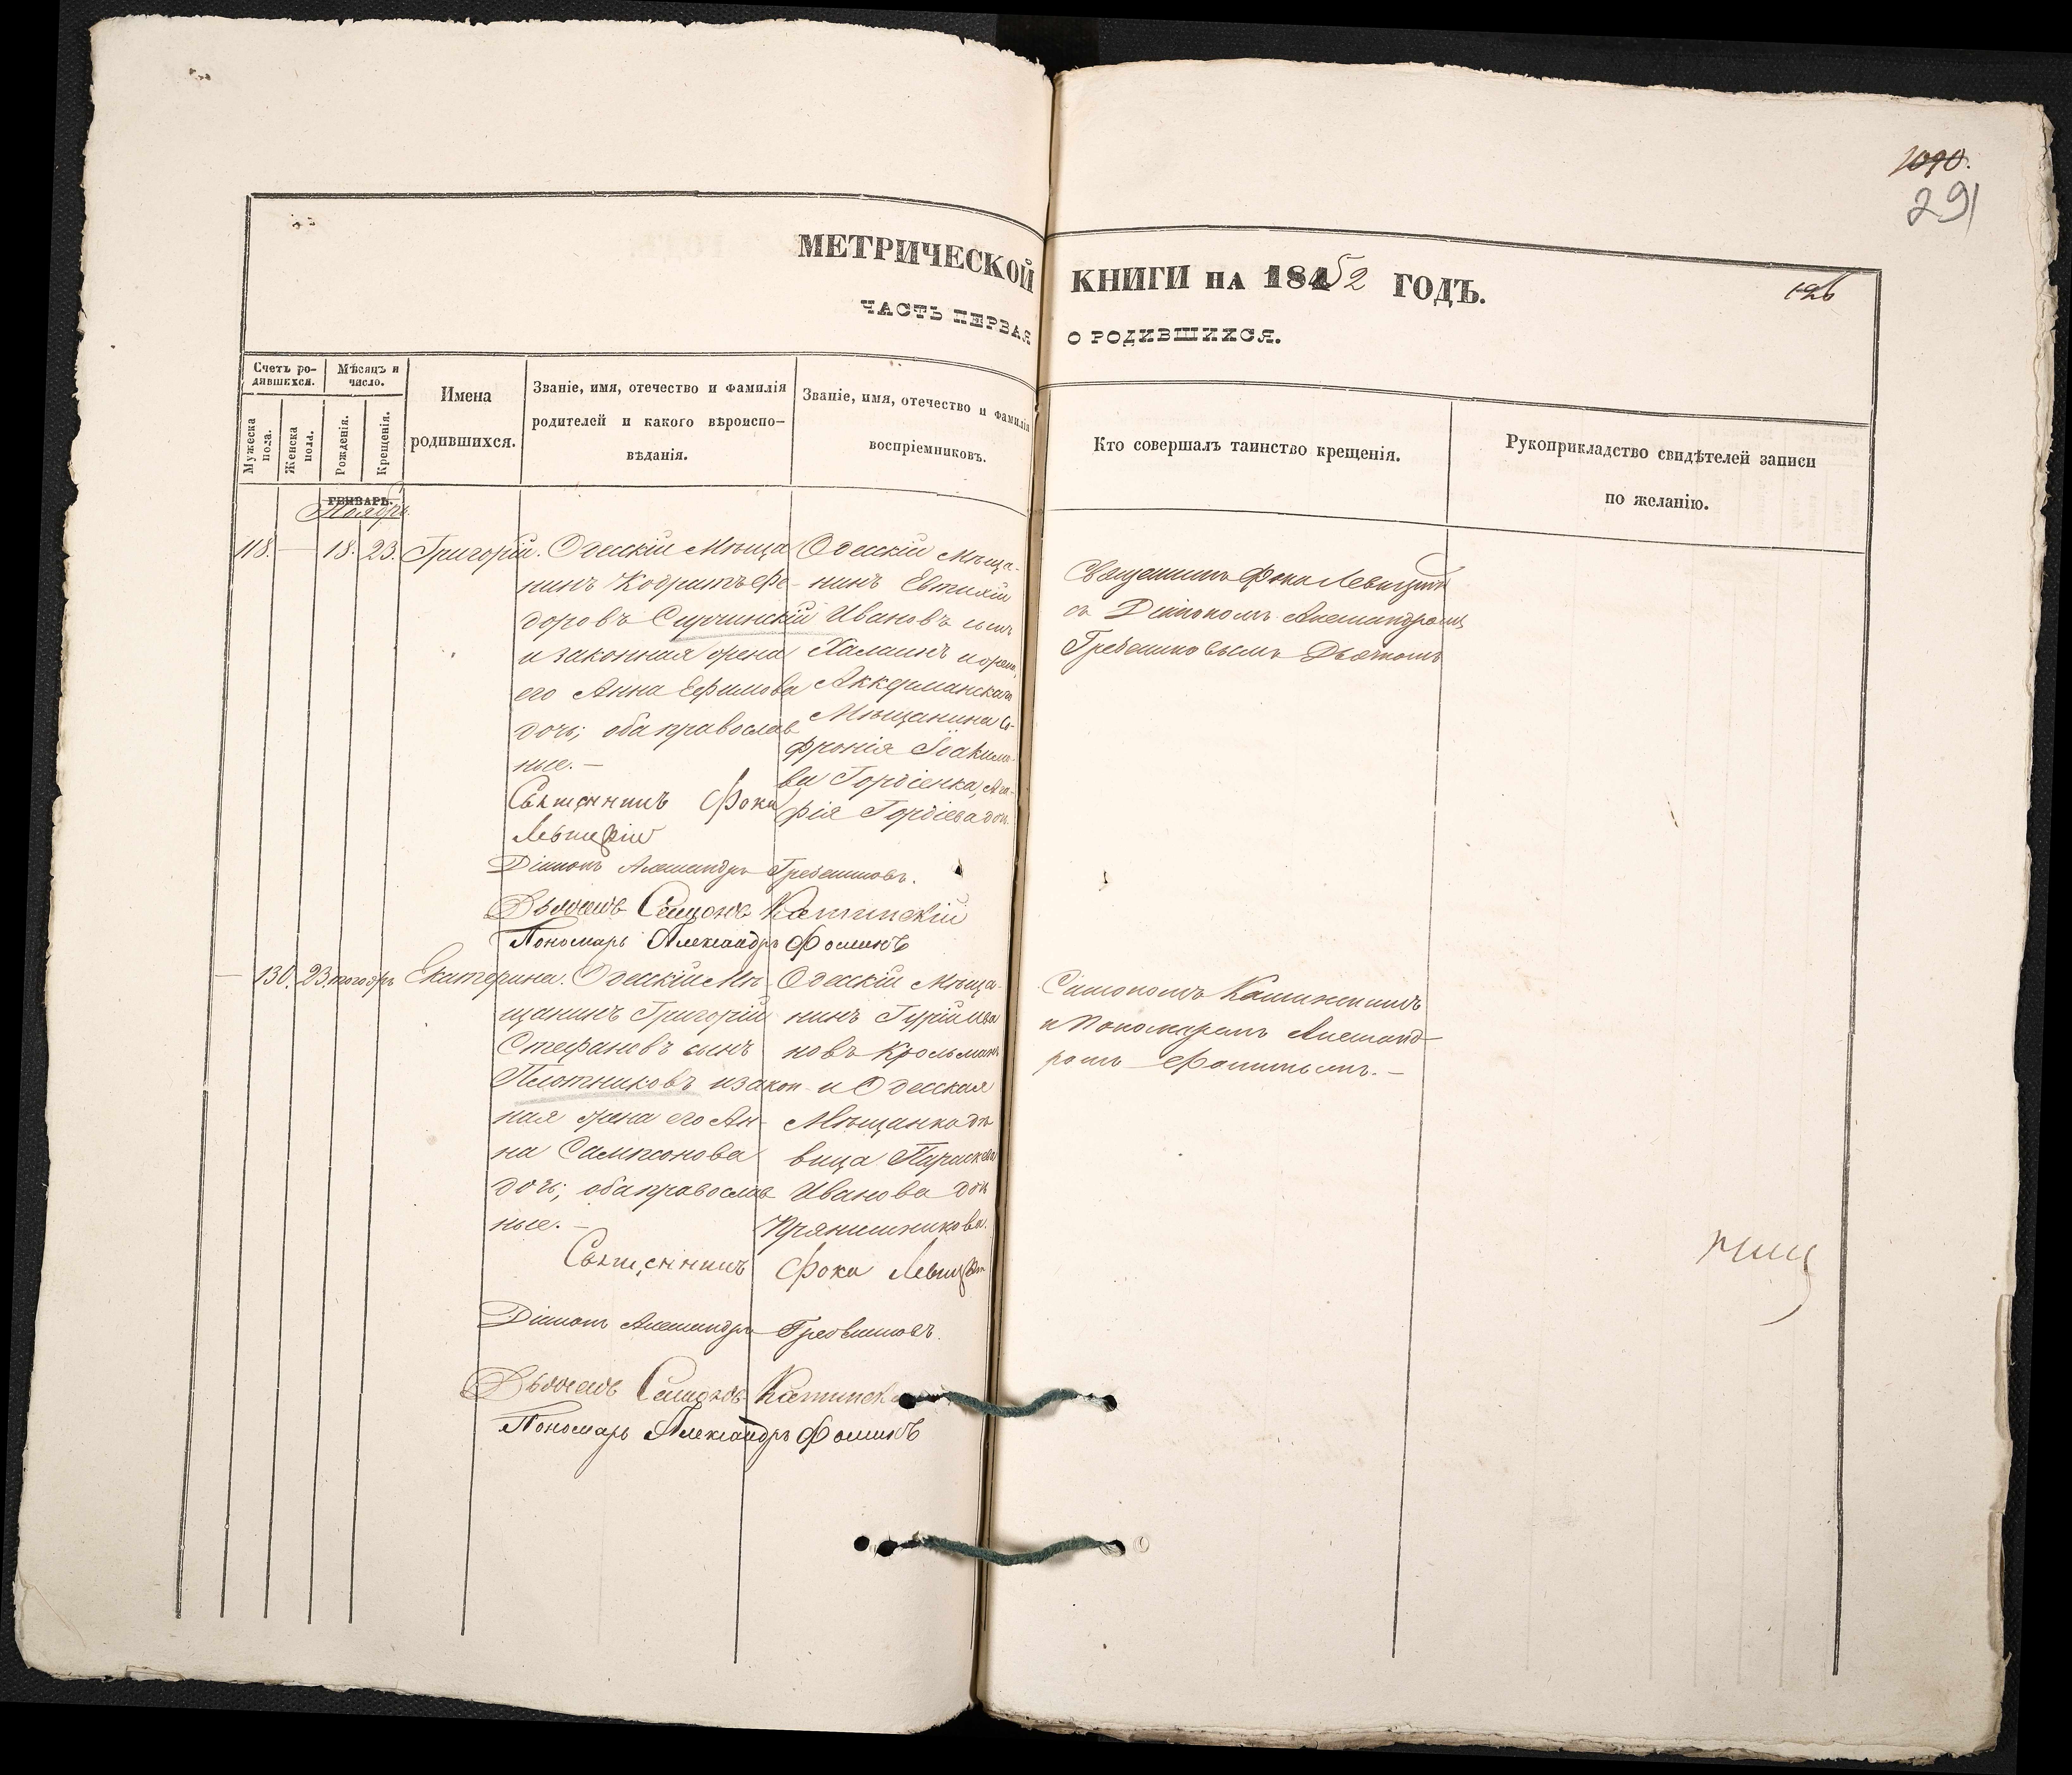 1090.
291
126
МЕТРИЧЕСКОЙ КНИГИ НА 1852 ГОДЪ.
ЧАСТЬ ПЕРВАЯ О РОДИВШИХСЯ.
Счетъ ро-
дившихся.
Мужеска
пола.
Женска
пола.
Мѣсяцъ и
число.
Рожденія.
Крещенія.
Имена
родившихся.
Званіе, имя, отечество и фамилія
родителей и какого вѣроиспо-
вѣданія.
Званіе, имя, отечество и фамилія
воспріемниковъ.
Кто совершалъ таинство крещенія.
Рукоприкладство свидѣтелей записи
по желанію.
ГЕНВАРЬ.
Ноябрь.
118. — 18. 23. Григорій.
Одесскій Мѣща
нинъ Кодратъ Фе-
доровъ
и законная жена
его Анна Ефимова
дочь; оба православ
ные. —
Одесскій Мѣща-
нинъ Евтихій
Ивановъ сынъ
Халаинъ и жена
Аккерманскаго
Мѣщанина Со-
фронія Іоакимо-
ва Гордіенка, Ага-
фія Гордіева дочь
Священникъ Фока Левицкій
съ Діакономъ Александромъ
Гребенниковымъ Дьячкомъ
Священникъ Фока
Левицкій
Діаконъ Александръ Гребенниковъ.
Дьячекъ Симеонъ
Пономарь Александръ Фоминъ
— 130. 23. тогожъ Екатерина.
Одесскій Мѣ-
щанинъ Григорій
Стефановъ сынъ
Плотниковъ и закон-
ная жена его Ан-
на Сампсонова
дочь; оба православ
ные. —
Одесскій Мѣща-
нинъ Гурій Ива
новъ Крольманъ
и Одесская
Мѣщанка дѣ
вица Параскева
Иванова дочь
Прянишникова.
и Пономаремъ Александ-
ромъ Фоминымъ. —
Священникъ Фока Левицкій
Діаконъ Александръ Гребенниковъ.
Дьячекъ Симеонъ
Пономарь Александръ Фоминъ